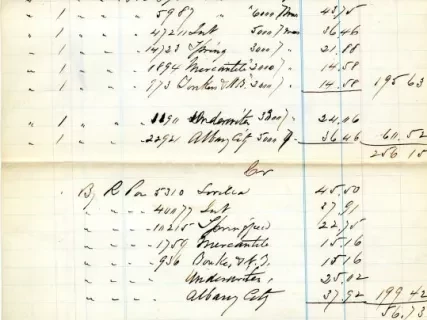 " 1 " " 5987 " " 6000 / 43.75
" 1 " " 47211 Int 5000 / 36.46
" 1 " " 14723 Spring 3000 / 21.88
" 1 " " 1894 Mercantile 2000 / 14.58
" 1 " " 973 2000 / 14.58 195 63
" 1 " " Underwriter 3300 / 24.06
" 1 " " 2292 Albany City 5000 36.46 60.52
256 15
Cr
By R Pou 5310 London 45.50
" " " 44077 Int 37.91
" " " 11215 Springfield 22.75
" " " 1759 Mercantile 15.16
" " " 936 15.16
" " " Underwriter, 25.02
" " " Albany City 37.92 199 42
56.73